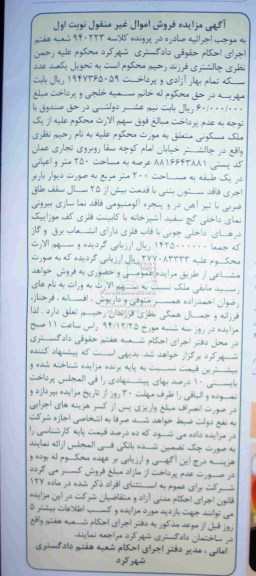 آگهی مزایده فروش اموال غیر منقول نوبت اول
به موجب اجرائیه صادره در پرونده کلاسه ۹۴۰۲۲۳ شعبه هفتم
اجرای احکام حقوقی دادگستری شهرکرد محکوم علیه رحمن
نظری چالشتری فرزند رحیم محکوم است به تحویل یکصد عدد
سکه تمام بهار آزادی و پرداخت ۱۹۴۷۳۶۵۰۵۹ ریال بابت
مهریه در حق محکوم له خانم سمیه خلجی و پرداخت مبلغ
۶۰/۰۰۰/۰۰۰ ریال بابت نیم عشر دولتی در حق صندوق با
توجه به عدم پرداخت مبالغ فوق سهم الارث محکوم علیه از یک
ملک مسکونی متعلق به مورث محکوم علیه به نام رحیم نظری
واقع در چالشتر خیابان امام کوچه سقا روبروی تجاری عمان
کد پستی ۸۸۱۶۶۴۳۸۸۱ عرصه به مساحت ۲۵۰ متر و اعیانی
در یک طبقه به مساحت ۲۰۰ متر مربع به صورت دیوار باربر
اجری فاقد ستون بتنی با قدمت بیش از ۲۵ سال سقف طاق
ضربی با تیر آهن در و پنجره آلومینیومی فاقد نما سازی بیرونی
نمای داخلی گچ سفید آشپزخانه با کابینت فلزی کف موزاییک
درهای داخلی چوبی با قاب فلزی دارای انشعاب برق و گاز
که جمعا ۱۴۲۵۰۰۰۰۰۰ ریال ارزیابی گردیده و سهم الارث
محکوم علیه ۲۷۷۰۸۳۳۳۳ ریال ارزیابی گردیده که به صورت
مشاعی از طریق مزایده عمومی و حضوری به فروش خواهد
رسید مابقی ملک نسبت به سهم الارث به وراث به نام های
رضوان احمدزاده همسر متوفی و داریوش، افسانه، فرحناز،
فرزانه و جمال همگی نظری فرزندان رحیم تعلق دارد. لذا
مزایده در روز سه شنبه مورخ ۹۴/۱۲/۲۵ راس ساعت ۱۱ صبح
در محل دفتر اجرای احکام شعبه هفتم حقوقی دادگستری
شهرکرد برگزار خواهد شد. بدیهی است که پیشنهاد کننده
بیشترین قیمت نسبت به پایه برنده مزایده شناخته شده و
بایستی ۱۰ درصد بهای پیشنهادی را فی المجلس پرداخت
نموده و الباقی را ظرف مهلت ۳۰ روز از تاریخ مزایده بپردازد و
در صورت انصراف مبلغ واریزی پس از کسر هزینه های اجرایی
به نفع دولت ضبط خواهد شد صرفا به اشخاصی اجازه شرکت
در مزایده داده می شود که ده درصد قیمت پایه کارشناسی را
به صورت چک تضمین شده بانکی فی المجلس ارائه نمایند
هزینه درج این آگهی و ارزیابی بر عهده محکوم له بوده و
در صورت عدم پرداخت از مازاد مبلغ فروش کسر می گردد
شرکت برای عموم به استثنای افراد ذکر شده در ماده ۱۲۷
قانون اجرای احکام مدنی آزاد و متقاضیان شرکت در این مزایده
می توانند جهت بازدید مورد مزایده و کسب اطلاعات بیشتر ۵
روز قبل از موعد مذکور به دفتر اجرای احکام شعبه هفتم واقع
در ساختمان دادگستری شهر کرد مراجعه نمایند.
امانی، مدیر دفتر اجرای احکام شعبه هفتم دادگستری
شهرکرد